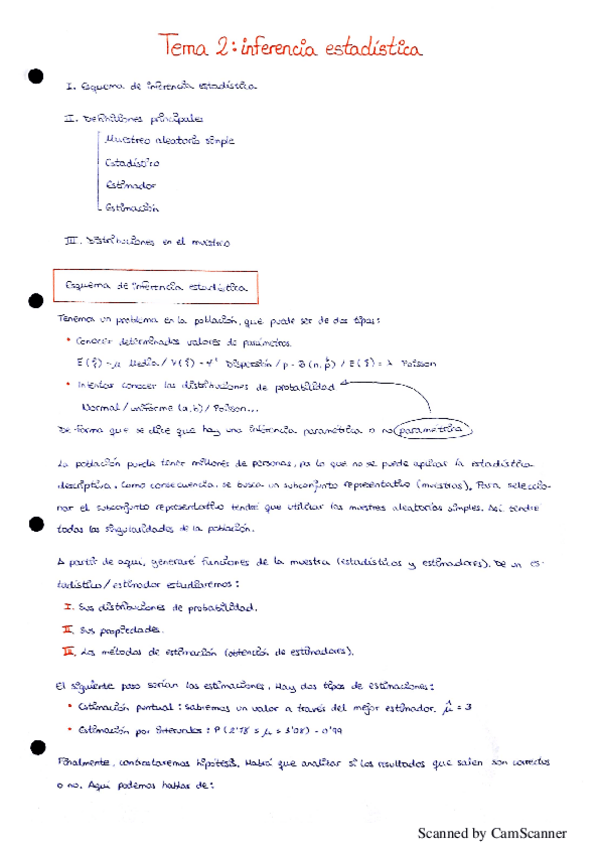 Tema 2: inferencia estadística
I. Esquema de inferencia estadística
II. Definiciones principales
Muestreo aleatorio simple
Estadístico
Estimador
Estimación
III. Distribuciones en el muestreo
Esquema de inferencia estadística
Tenemos un problema en la población, que puede ser de dos tipos:
• Conocer determinados valores de parámetros.
E(ξ) = μ Media / V(ξ) = σ² Dispersión / p - B(n, p) / E(ξ) = λ Poisson
• Intentar conocer las distribuciones de probabilidad
Normal / uniforme (a, b) / Poisson...
De forma que se dice que hay una inferencia paramétrica o no paramétrica
La población puede tener millones de personas, por lo que no se puede aplicar la estadística
descriptiva. Como consecuencia, se busca un subconjunto representativo (muestras). Para seleccio-
nar el subconjunto representativo tendré que utilizar las muestras aleatorias simples. Así tendré
todas las singularidades de la población.
A partir de aquí, generaré funciones de la muestra (estadísticos y estimadores). De un es-
tadístico/estimador estudiaremos:
I. Sus distribuciones de probabilidad.
II. Sus propiedades.
III. Los métodos de estimación (obtención de estimadores).
El siguiente paso serían las estimaciones. Hay dos tipos de estimaciones:
• Estimación puntual: sabremos un valor a través del mejor estimador. μ̂ = 3
• Estimación por intervalos: P(2'98 ≤ μ ≤ 3'08) = 0'99
Finalmente, contrastaremos hipótesis. Habrá que analizar si los resultados que salen son correctos
o no. Aquí podemos hablar de:
Scanned by CamScanner